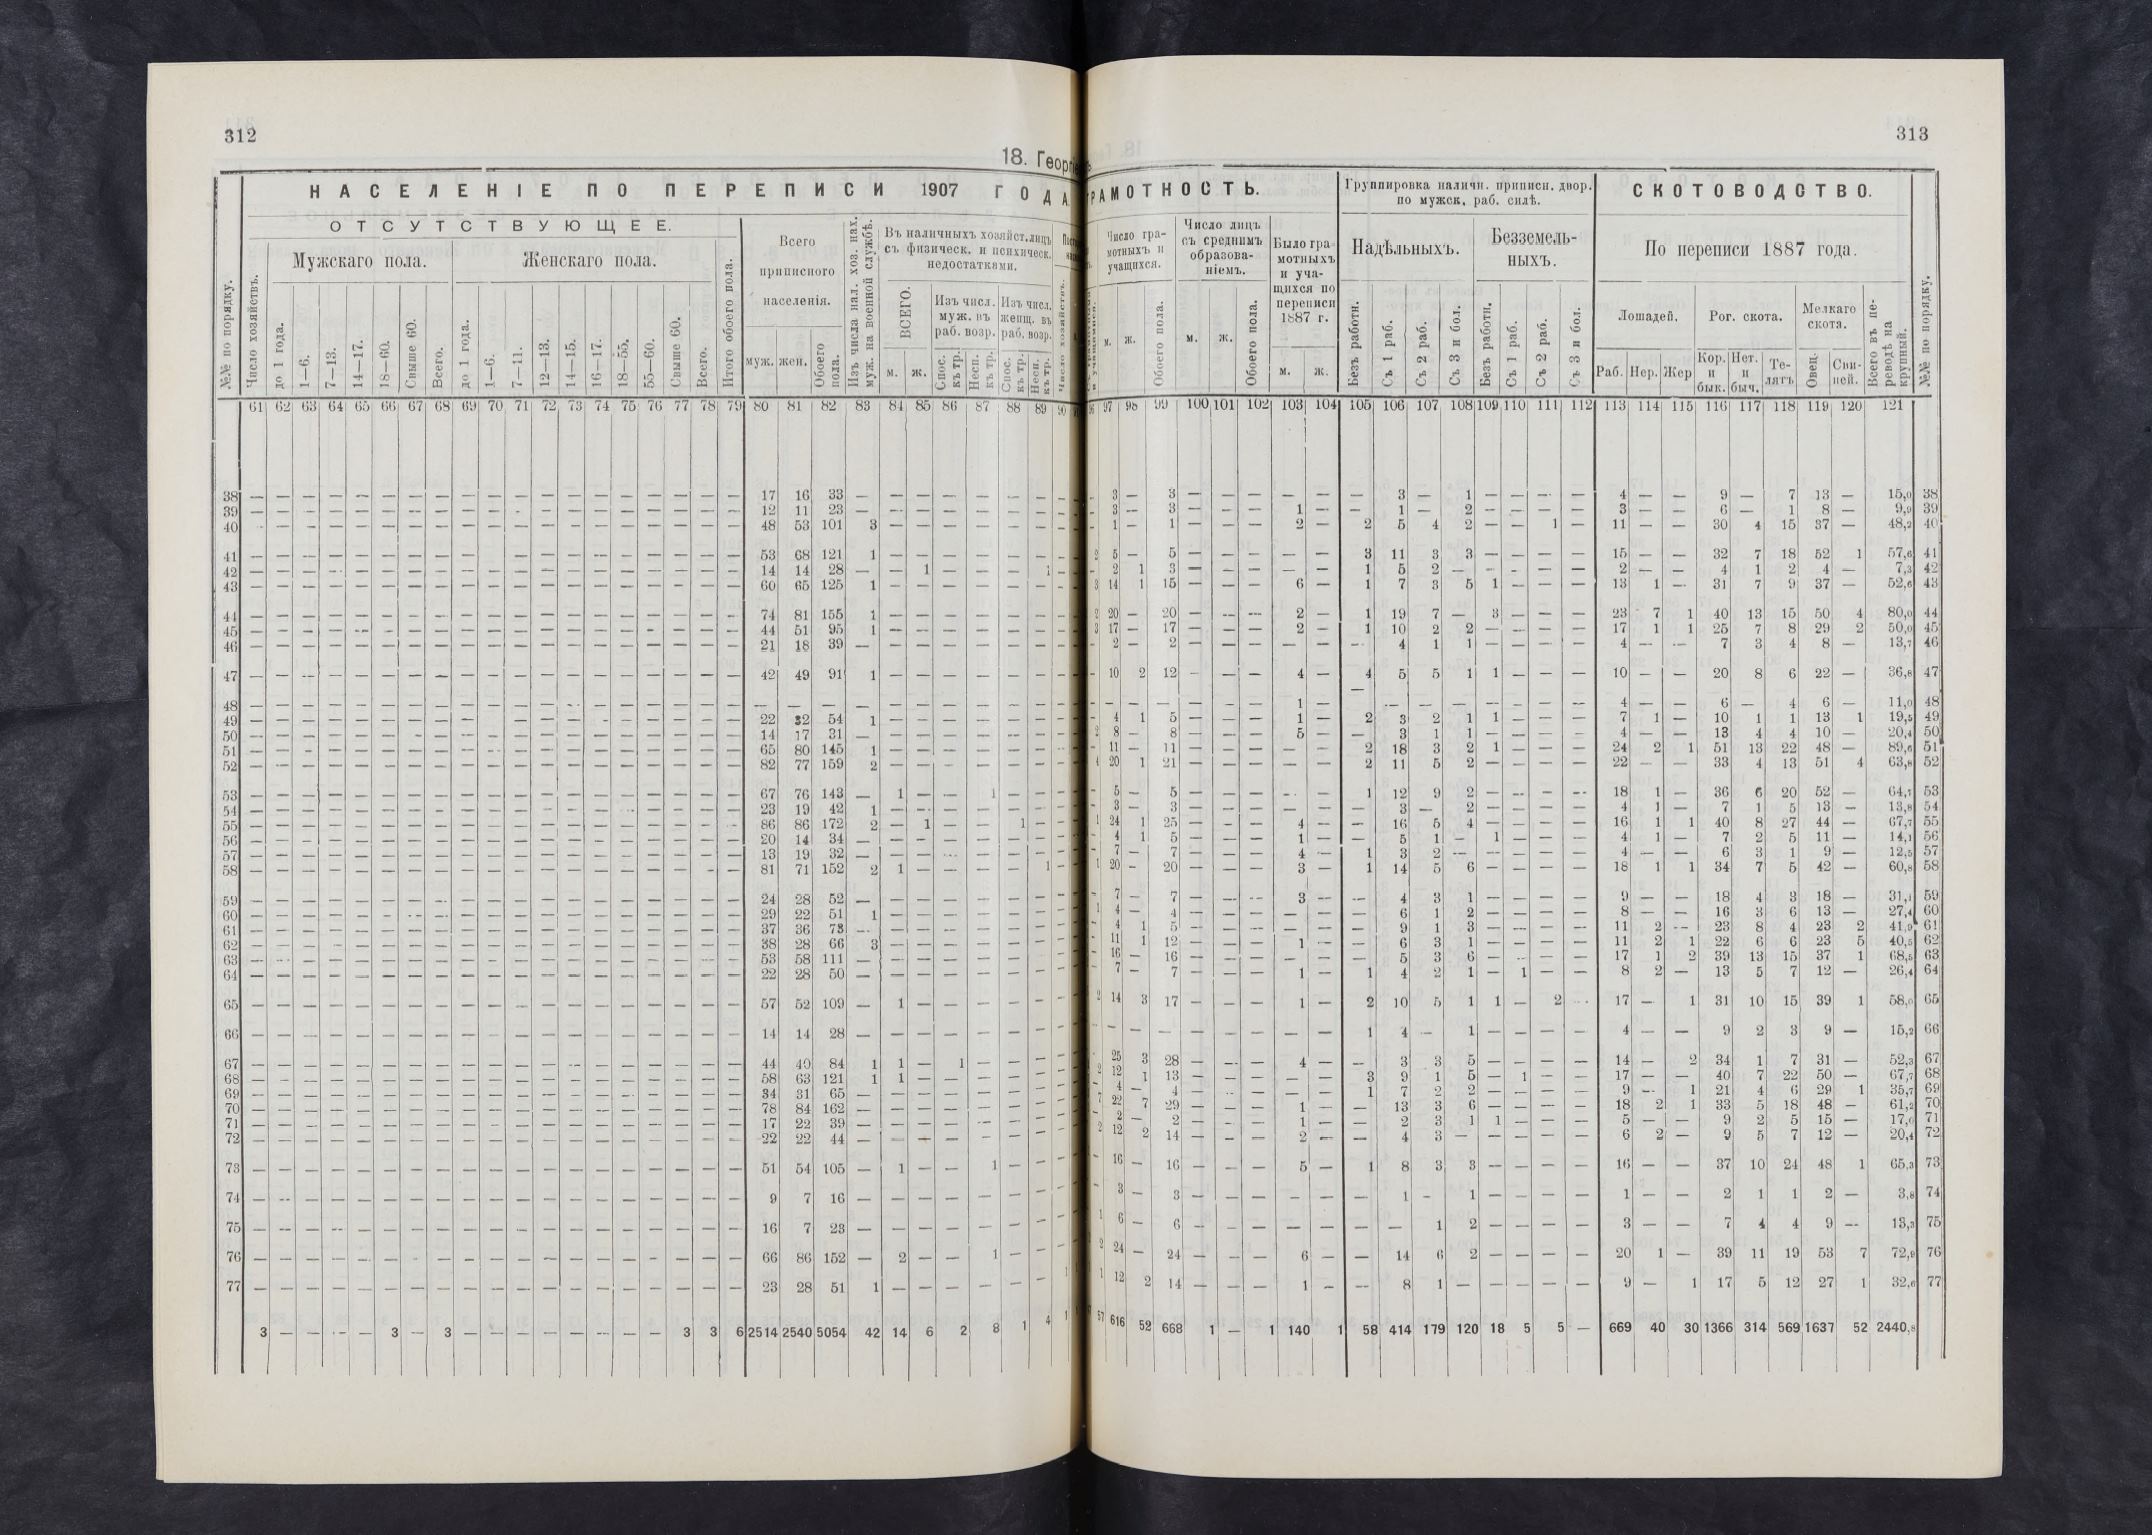 312
18. Георгіе
НАСЕЛЕНІЕ ПО ПЕРЕПИСИ 1907 ГОДА.
ОТСУТСТВУЮЩЕЕ.
№№ по порядку.
Число хозяйствъ.
Мужскаго пола.
Женскаго пола.
до 1 года. 1—6. 7—13. 14—17. 18—60. Свыше 60. Всего.
до 1 года. 1—6. 7—11. 12—13. 14—15. 16—17. 18—55. 55—60. Свыше 60. Всего.
Итого обоего пола.
Всего приписного населенія.
муж. жен. Обоего пола.
Изъ числа нал. хоз. нах. муж. на военной службѣ.
Въ наличныхъ хозяйст. лицъ съ физическ. и психическ. недостатками.
ВСЕГО. м. ж.
Изъ числ. муж. въ раб. возр. Спос. къ тр. Несп. къ тр.
Изъ числ. женщ. въ раб. возр. Спос. къ тр. Несп. къ тр.
Число хозяйствъ.
61 62 63 64 65 66 67 68 69 70 71 72 73 74 75 76 77 78 79 80 81 82 83 84 85 86 87 88 89 90
38 — — — — — — — — — — — — — — — — — — — 17 16 33 — — — — — — —
39 — — — — — — — — — — — — — — — — — — — 12 11 23 — — — — — — —
40 — — — — — — — — — — — — — — — — — — — 48 53 101 3 — — — — — —
41 — — — — — — — — — — — — — — — — — — — 53 68 121 1 — — — — — —
42 — — — — — — — — — — — — — — — — — — — 14 14 28 — — 1 — — — 1
43 — — — — — — — — — — — — — — — — — — — 60 65 125 1 — — — — — —
44 — — — — — — — — — — — — — — — — — — — 74 81 155 1 — — — — — —
45 — — — — — — — — — — — — — — — — — — — 44 51 95 1 — — — — — —
46 — — — — — — — — — — — — — — — — — — — 21 18 39 — — — — — — —
47 — — — — — — — — — — — — — — — — — — — 42 49 91 1 — — — — — —
48 — — — — — — — — — — — — — — — — — — — — — — — — — — — — —
49 — — — — — — — — — — — — — — — — — — — 22 32 54 1 — — — — — —
50 — — — — — — — — — — — — — — — — — — — 14 17 31 — — — — — — —
51 — — — — — — — — — — — — — — — — — — — 65 80 145 1 — — — — — —
52 — — — — — — — — — — — — — — — — — — — 82 77 159 2 — — — — — —
53 — — — — — — — — — — — — — — — — — — — 67 76 143 — 1 — — 1 — —
54 — — — — — — — — — — — — — — — — — — — 23 19 42 1 — — — — — —
55 — — — — — — — — — — — — — — — — — — — 86 86 172 2 — 1 — — 1 —
56 — — — — — — — — — — — — — — — — — — — 20 14 34 — — — — — — —
57 — — — — — — — — — — — — — — — — — — — 13 19 32 — — — — — — —
58 — — — — — — — — — — — — — — — — — — — 81 71 152 2 1 — — — — 1
59 — — — — — — — — — — — — — — — — — — — 24 28 52 — — — — — — —
60 — — — — — — — — — — — — — — — — — — — 29 22 51 1 — — — — — —
61 — — — — — — — — — — — — — — — — — — — 37 36 73 — — — — — — —
62 — — — — — — — — — — — — — — — — — — — 38 28 66 3 — — — — — —
63 — — — — — — — — — — — — — — — — — — — 53 58 111 — — — — — — —
64 — — — — — — — — — — — — — — — — — — — 22 28 50 — — — — — — —
65 — — — — — — — — — — — — — — — — — — — 57 52 109 — 1 — — — — —
66 — — — — — — — — — — — — — — — — — — — 14 14 28 — — — — — — —
67 — — — — — — — — — — — — — — — — — — — 44 40 84 1 1 — 1 — — —
68 — — — — — — — — — — — — — — — — — — — 58 63 121 1 1 — — — — —
69 — — — — — — — — — — — — — — — — — — — 34 31 65 — — — — — — —
70 — — — — — — — — — — — — — — — — — — — 78 84 162 — — — — — — —
71 — — — — — — — — — — — — — — — — — — — 17 22 39 — — — — — — —
72 — — — — — — — — — — — — — — — — — — — 22 22 44 — — — — — — —
73 — — — — — — — — — — — — — — — — — — — 51 54 105 — 1 — — 1 — —
74 — — — — — — — — — — — — — — — — — — — 9 7 16 — — — — — — —
75 — — — — — — — — — — — — — — — — — — — 16 7 23 — — — — — — —
76 — — — — — — — — — — — — — — — — — — — 66 86 152 — 2 — — 1 — —
77 — — — — — — — — — — — — — — — — — — — 23 28 51 1 — — — — — —
3 — — — — 3 — 3 — — — — — — — — 3 3 6 2514 2540 5054 42 14 6 2 8 1 4 1
313
РАМОТНОСТЬ.
Число грамотныхъ и учащихся.
м. ж. Обоего пола.
Число лицъ съ среднимъ образованіемъ.
м. ж. Обоего пола.
Было грамотныхъ и учащихся по переписи 1887 г.
м. ж.
Группировка наличн. приписн. двор. по мужск. раб. силѣ.
Надѣльныхъ.
Безъ работн. Съ 1 раб. Съ 2 раб. Съ 3 и бол.
Безземельныхъ.
Безъ работн. Съ 1 раб. Съ 2 раб. Съ 3 и бол.
СКОТОВОДСТВО.
По переписи 1887 года.
Лошадей. Раб. Нер. Жер
Рог. скота. Кор. и бык. Нет. и быч. Телятъ
Мелкаго скота. Овец. Свиней.
Всего въ переводѣ на крупный.
№№ по порядку.
97 98 99 100 101 102 103 104 105 106 107 108 109 110 111 112 113 114 115 116 117 118 119 120 121
3 — 3 — — — — — — 3 — 1 — — — — 4 — — 9 — 7 13 — 15,0 38
3 — 3 — — — 1 — — 1 — 2 — — — — 3 — — 6 — 1 8 — 9,9 39
1 — 1 — — — 2 — 2 5 4 2 — — 1 — 11 — — 30 4 15 37 — 48,2 40
2 5 — 5 — — — — — 3 11 3 3 — — — — 15 — — 32 7 18 52 1 57,6 41
2 1 3 — — — — — 1 5 2 — — — — — 2 — — 4 1 2 4 — 7,3 42
3 14 1 15 — — — 6 — 1 7 3 5 1 — — — 13 1 — 31 7 9 37 — 52,6 43
2 20 — 20 — — — 2 — 1 19 7 — 3 — — — 23 7 1 40 13 15 50 4 80,0 44
3 17 — 17 — — — 2 — 1 10 2 2 — — — — 17 1 1 25 7 8 29 2 50,0 45
2 — 2 — — — — — — 4 1 1 — — — — 4 — — 7 3 4 8 — 13,7 46
10 2 12 — — — 4 — 4 5 5 1 1 — — — 10 — — 20 8 6 22 — 36,8 47
— — — — — — 1 — — — — — — — — — 4 — — 6 — 4 6 — 11,0 48
4 1 5 — — — 1 — 2 3 2 1 1 — — — 7 1 — 10 1 1 13 1 19,5 49
2 8 — 8 — — — 5 — — 3 1 1 — — — — 4 — — 13 4 4 10 — 20,4 50
11 — 11 — — — — — 2 18 3 2 1 — — — 24 2 1 51 13 22 48 — 89,6 51
4 20 1 21 — — — — — 2 11 5 2 — — — — 22 — — 33 4 13 51 4 63,8 52
5 — 5 — — — — — 1 12 9 2 — — — — 18 1 — 36 6 20 52 — 64,7 53
3 — 3 — — — — — — 3 — 2 — — — — 4 1 — 7 1 5 13 — 13,8 54
1 24 1 25 — — — 4 — — 16 5 4 — — — — 16 1 1 40 8 27 44 — 67,7 55
4 1 5 — — — 1 — — 5 1 — 1 — — — 4 1 — 7 2 5 11 — 14,1 56
7 — 7 — — — 4 — 1 3 2 — — — — — 4 — — 6 3 1 9 — 12,5 57
1 20 — 20 — — — 3 — 1 14 5 6 — — — — 18 1 1 34 7 5 42 — 60,8 58
7 — 7 — — — 3 — — 4 3 1 — — — — 9 — — 18 4 3 18 — 31,1 59
1 4 — 4 — — — — — — 6 1 2 — — — — 8 — — 16 3 6 13 — 27,4 60
4 1 5 — — — — — — 9 1 3 — — — — 11 2 — 23 8 4 23 2 41,9 61
11 1 12 — — — 1 — — 6 3 1 — — — — 11 2 1 22 6 6 23 5 40,5 62
16 — 16 — — — — — — 5 3 6 — — — — 17 1 2 39 13 15 37 1 68,5 63
7 — 7 — — — 1 — 1 4 2 1 — 1 — — 8 2 — 13 5 7 12 — 26,4 64
2 14 3 17 — — — 1 — 2 10 5 1 1 — 2 — 17 — 1 31 10 15 39 1 58,0 65
— — — — — — — — 1 4 — 1 — — — — 4 — — 9 2 3 9 — 15,2 66
25 3 28 — — — 4 — — 3 3 5 — — — — 14 — 2 34 1 7 31 — 52,3 67
2 12 1 13 — — — — — 3 9 1 5 — 1 — — 17 — — 40 7 22 50 — 67,7 68
4 — 4 — — — — — 1 7 2 2 — — — — 9 — 1 21 4 6 29 1 35,7 69
7 22 7 29 — — — 1 — — 13 3 6 — — — — 18 2 1 33 5 18 48 — 61,2 70
2 — 2 — — — 1 — — 2 3 1 1 — — — 5 — — 9 2 5 15 — 17,0 71
2 12 2 14 — — — 2 — — 4 3 — — — — — 6 2 — 9 5 7 12 — 20,4 72
16 — 16 — — — 5 — 1 8 3 3 — — — — 16 — — 37 10 24 48 1 65,3 73
3 — 3 — — — — — — 1 — 1 — — — — 1 — — 2 1 1 2 — 3,8 74
1 6 — 6 — — — — — — — 1 2 — — — — 3 — — 7 4 4 9 — 13,3 75
2 24 — 24 — — — 6 — — 14 6 2 — — — — 20 1 — 39 11 19 53 7 72,9 76
1 12 2 14 — — — 1 — — 8 1 — — — — — 9 — 1 17 5 12 27 1 32,6 77
57 616 52 668 1 — 1 140 1 58 414 179 120 18 5 5 — 669 40 30 1366 314 569 1637 52 2440,8